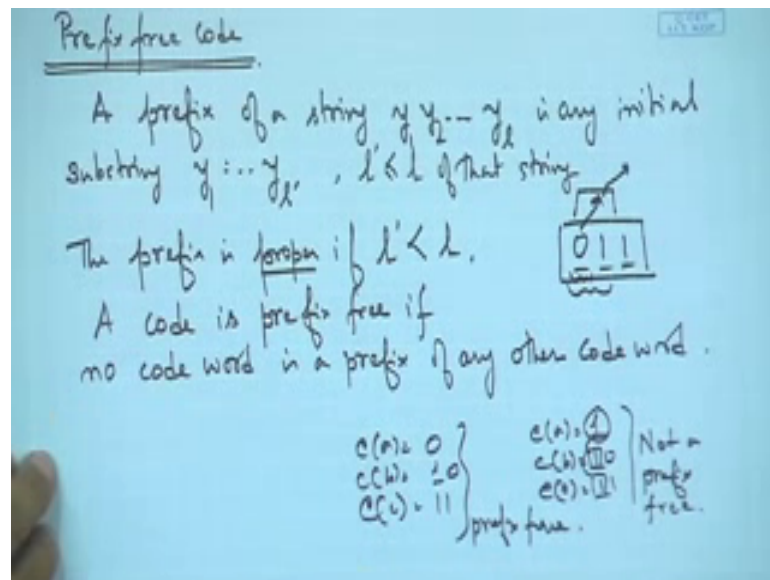 Prefix free Code
A prefix of a string y₁ y₂ -- y_l is any initial
Substring y₁ ... y_l' , l' ≤ l of that string
The prefix is proper if l' < l.
0 1 1
A code is prefix free if
no code word is a prefix of any other code word .
C(a) = 0
C(b) = 10
C(c) = 11
prefix free .
C(a) = 1
Not a
prefix
free.